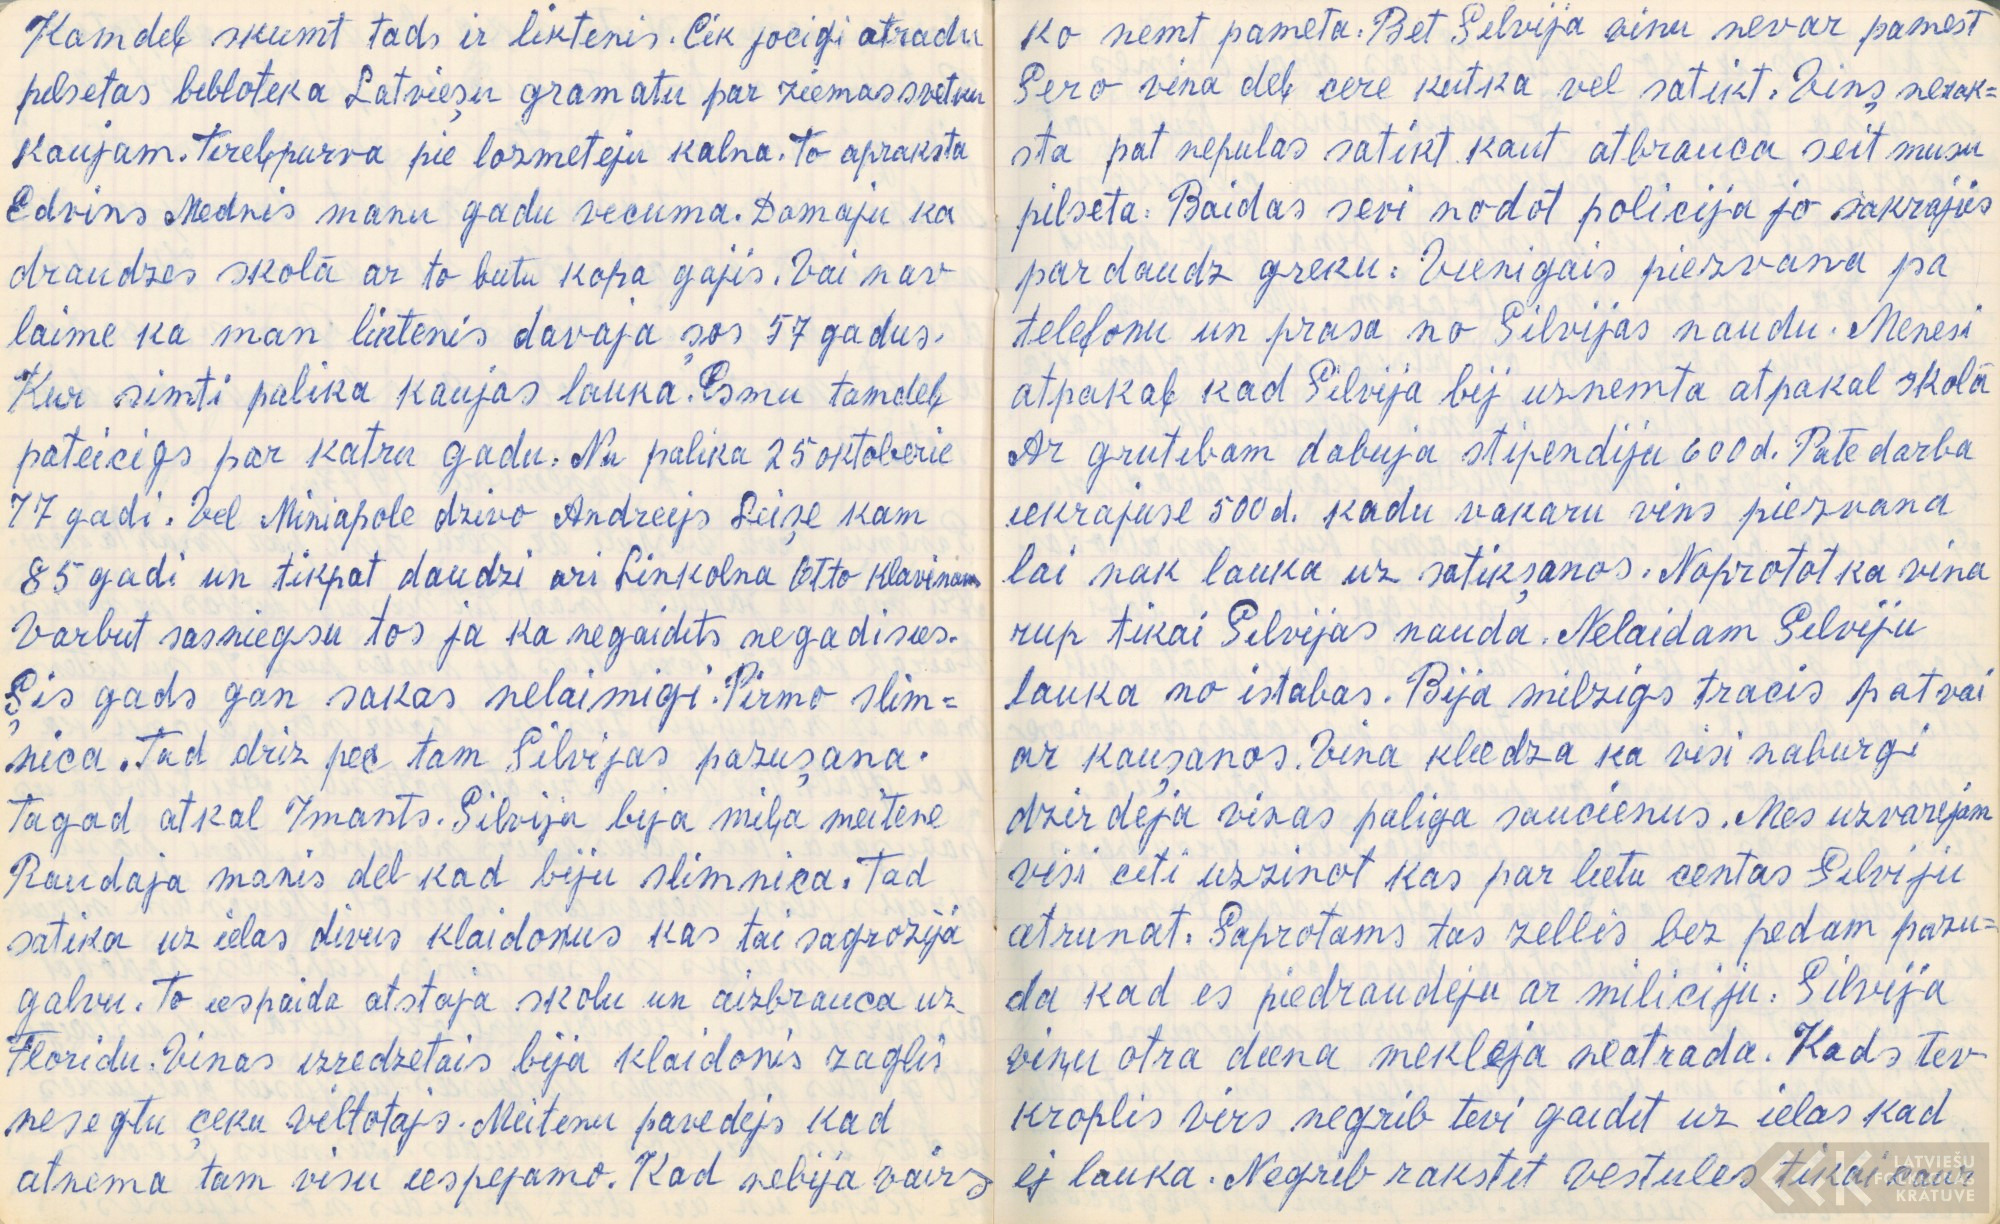 Kamdeļ skumt tads ir liktenis. Cik jocigi atradu
pilsetas bibloteka Latvieşu gramatu par ziemassvetku
kaujam. Tireļpurva pie lozmeteju kalna. To apraksta
Edvins Mednis manu gadu vecuma. Domaju ka
draudzes skolā ar to butu kopa gajis. Vai nav
laime ka man liktenis davaja şos 57 gadus.
Kur simti palika kaujas lauka. Esmu tamdeļ
pateicigs par katru gadu. Nu palika 25 oktoberie
77 gadi. Vel Miniapole dzivo Andreijs Leişe kam
85 gadi un tikpat daudzi ari Linkolna Otto Klavinam
Varbut sasniegsu tos ja ka negaidits negadisies.
Şis gads gan sakas nelaimigi. Pirmo slim=
nica. Tad driz pec tam Silvijas pazuşana.
Tagad atkal Imants. Silvija bija miļa meitene
Raudaja manis deļ kad biju slimnica. Tad
satika uz ielas divus klaidonus kas tai sagrozija
galvu. To iespaida atstaja skolu un aizbrauca uz
Floridu. Vinas izredzetais bija klaidonis zaglis
nesegtu çeku viltotajs. Meitenu pavedejs kad
atnema tam visu iespejamo. Kad nebija vairs
ko nemt pameta. Bet Silvija vinu nevar pamest
Pero vina deļ cere kutka vel satikt. Vinş nerak=
sta pat nepulas satikt kaut atbrauca seit musu
pilseta. Baidas sevi nodot policija jo sakrajies
par daudz greku. Vienigais piezvana pa
telefonu un prasa no Silvijas naudu. Menesi
atpakaļ kad Silvija bij uznemta atpakal skolā
Ar grutibam dabuja stipendiju 600 d. Pate darba
iekrajuse 500 d. kadu vakaru vins piezvana
lai nak lauka uz satikşanos. Noprotot ka vina
rup tikai Silvijas nauda. Nelaidam Silviju
lauka no istabas. Bija milzigs tracis pat vai
ar kauşanos. Vina kliedza ka visi naburgi
dzirdeja vinas paliga saucienus. Mes uzvarejam
visi citi uzzinot kas par lietu centas Silviju
atrunat. Saprotams tas zellis bez pedam pazu=
da kad es piedraudeju ar miliciju. Silvija
viņu otra diena mekleja neatrada. Kads tev
kroplis virs negrib tevi gaidit uz ielas kad
ej lauka. Negrib rakstit vestules tikai caur
LATVIEŠU
FOLKLORAS
KRATUVE